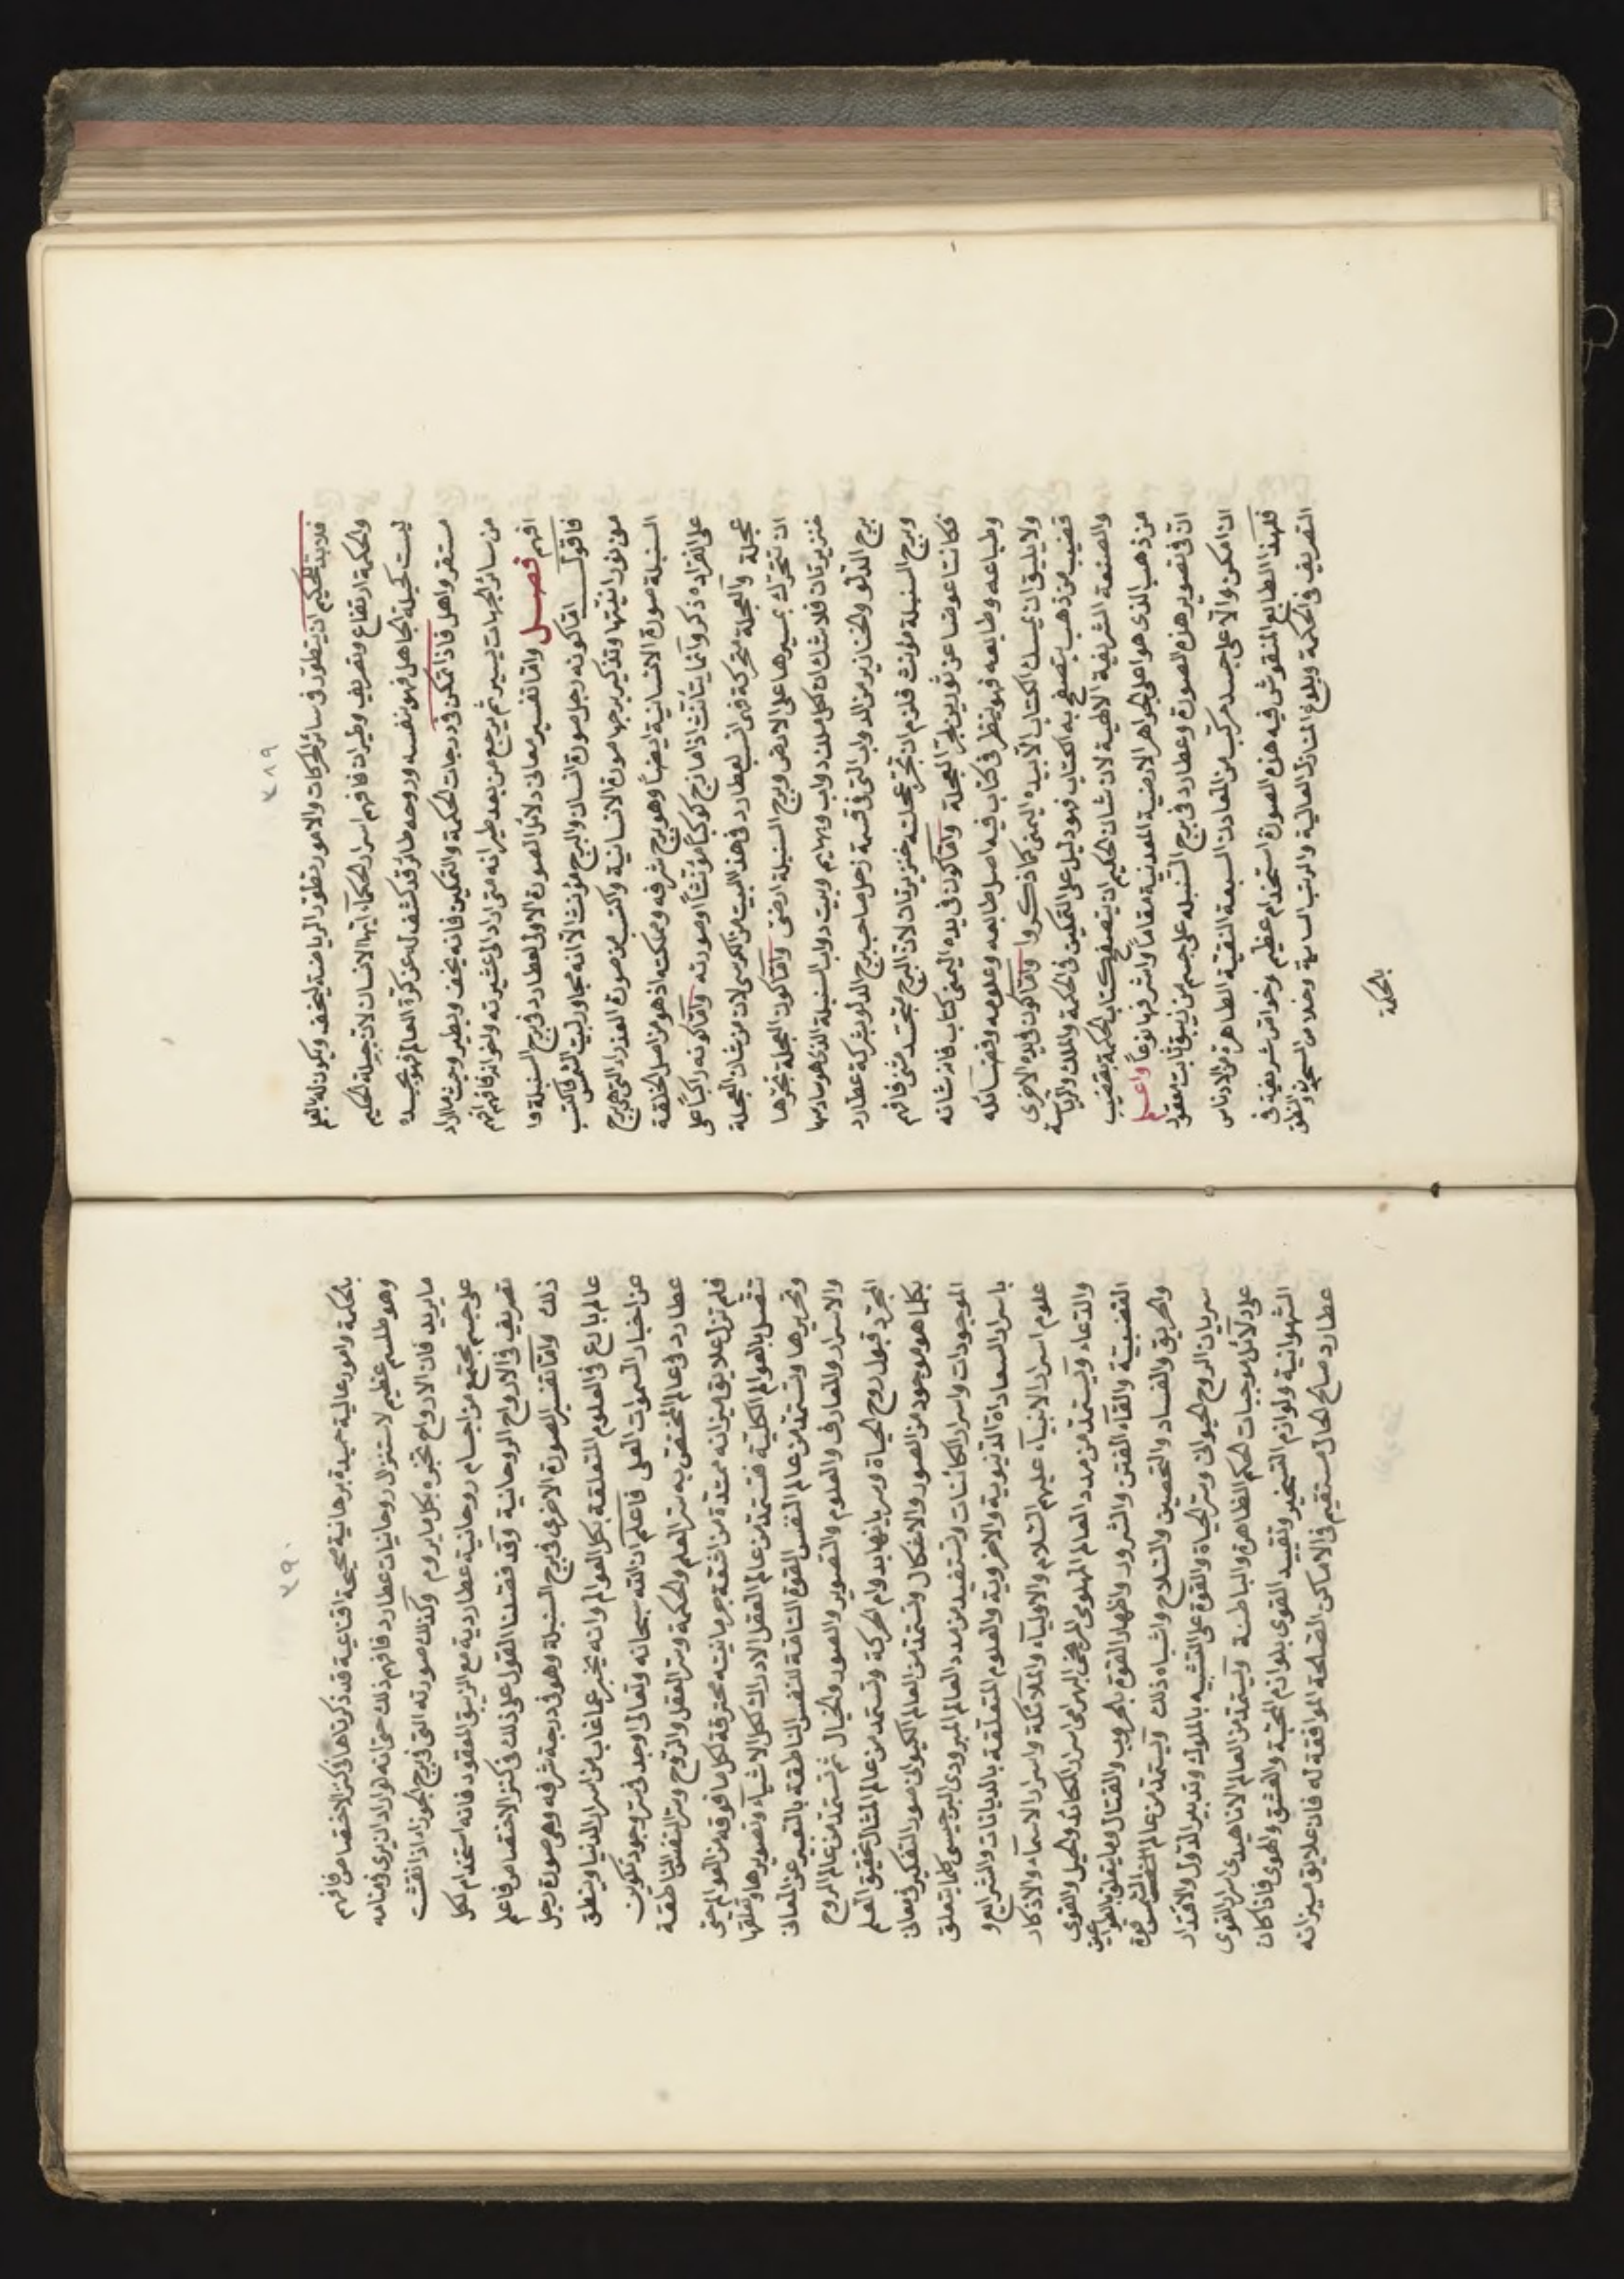 ٧٨٩
فلا بد للحكيم ان يتطور فى سائر الحركات والامور تطور الرياضة ليخف ويكون له بالعلم
والحكمة ارتفاع وتصريف وطيران فافهم اسرار الحكماء ايها الانسان لان تحيلة الحكيم
ليست كحيلة الجاهل فهو بنفسه وروحه طائر قد كشف له عن كرة العالم فهو بجسده
مستقر واهل فاذا تمكن فى درجات الحكمة والتمكين فانه يخف ويطير وحيث ما اراد
من سائر الجهات يسير ثم يرجع من بعد طيرانه متى اراد الى عشيرته واخوانه فافهم افهم
افهم فصل واما تفسير معانى دلائل الصورة الاولى لعطارد فى برج السنبلة
فاقول اما كونه رجل صورة انسان والبرج مؤنث الا انه مجاور لبيت الشمس فاكتسب
من نور انثيتها وتذكير برجها صورة الانسانية واكتسب من صورة العذراء التى هى برج
السنبلة صورة الانسانية ايضا وهو برج شرفه ومملكته اذ هو من اصل الخلقة
على انفراده ذكر وانما يتأنث اذا مازج كوكبا مؤنثا او صورته واما كونه راكبا على
عجلة والعجلة متحركة فهى انسب لعطارد فى هذا البيت من الكرسى لان من شان العجلة
ان تتحرك بمسيرها على الارض وبرج السنبلة ارضى واما كون العجلة تجرها
خنزيرتان فلا شك ان لكل ملك دواب وبهايم وبيت دواب السنبلة الذى هو سادسها
برج الدلو والخنازير من الدواب التى فى قسمة زحل صاحب برج الدلو بشركة عطارد
وبرج السنبلة مؤنث فلزم ان تجر عجلته خنزيرتان لان البرج متجسد مثنى فافهم
فكانتا عوضا عن ثورين لجر العجلة واما كون فى يده اليمنى كتاب فان شانه
وطباعه وطابعه فهو ينظر فى كتاب فيه اصل طابعه وعلومه وفضائله
ولا يليق ان يمسك الكتاب الا بيده اليمنى كما ذكروا واما كون فى يده الاخرى
قضيب من ذهب يتصفح به الكتاب فهو دليل على التمكين فى الحكمة والملك والرياسة
والصنعة الشريفة الالهية لان شان الحكيم ان يتصفح كتاب الحكمة بقضيب
من ذهب الذى هو اعلى الجواهر الارضية المعدنية مقاما واشرفها نوعا واعلم
ان فى تصوير هذه الصورة وعطارد فى برج السنبلة على جسم من زيبق ثابت معقود
ان امكن والا على جسد مركب من المعادن السبعة النقية الطاهرة من الادناس
فلهذا الطابع المنقوش فيه هذه الصورة استخدام عظيم وخواص شريفة فى
التصريف فى الحكمة وبلوغ المنازل العالية والرتب السامية وخلاص المسجونين والنطق
بالحكمة
٧٩٠
بالحكمة وامور عالية حميدة برهانية صحيحة اقناعية قد ذكرناها فى كنز الاختصاص فافهم
وهو طلسم عظيم لاستنزال روحانيات عطارد فافهم ذلك حتى انه لو اراد ان يرى فى منامه
ما يريد فان الارواح تخبره بكل ما يروم وكذلك صورته التى فى برج الجوزاء اذا نقشت
على جسم مجتمع من اجسام روحانية عطاردية مع الزيبق المعقود فانه استخدام لكل
تصريف فى الارواح الروحانية وقد فصلنا القول على ذلك فى كنز الاختصاص فاعلم
ذلك واما تفسير الصورة الاخرى فى برج السنبلة وهو فى درجة شرفه وهى صورة رجل
عالم بارع فى العلوم المتعلقة بكل العوالم وانه يخبر عما غاب من اسرار الدنيا وينطق
عن اخبار السموات العلى فاعلم ان الله سبحانه وتعالى اوجد فى سر وجود تكوين
عطارد فى عالمه المختص به سر العلم والحكمة وسر العقل والروح وسر النفس الناطقة
فلم تزل علايق ميزانه ممتدة من اشعة جرمانيته مخترقة لكل ما فوقه من العوالم حتى
تتصل بالعوالم الكلية فتستمد من عالم العقل الادراك لكل الاشياء وتصويرها وتعلقها
وتحريرها وتستمد من عالم النفس القوة التامة للنفس الناطقة بالتعبير عن المعانى
والاسرار والمعارف والعلوم والتصوير والصور والخيال ثم تستمد من عالم الروح
المجرد قبول روح الحياة وسريانها بدوام الحركة وتستمد من عالم المثال تحقيق العلم
بكلما هو موجود من الصور والاشكال وتستمد من العالم الكيوانى صور التفكير فى معانى
الموجودات واسرار الكائنات وتستفيد من مدد العالم البرودى البرجيسى كلما يتعلق
باسرار السعاداة الدنيوية والاخروية والعلوم المتعلقة بالديانات والشرايع و
علوم اسرار الانبياء عليهم السلام والاولياء والملائكة واسرار الاسماء والاذكار
والدعاء ويستمد من مدد العالم المريخى البهرامى اسرار المكائد والحيل والقوى
الغضبية والقاء الفتن والشرور واظهار القوة بالحروب والقتال وما يتعلق بالقوانين
والحريق والفساد والتحصين والسلاح واشباه ذلك ويستمد من عالم الشمس قوة
سريان الروح الحيوانى وسر الحياة والقوة على التشبيه بالملوك وتدبير الدول والاقتدار
على دلائل موجبات الحكم الظاهرة والباطنة ويستمد من العالم الاناهيدى سر القوى
الشهوانية ولوازم التسخير وتقييد القوى بلوازم المحبة والعشق والهوى فاذا كان
عطارد صالح الحال مستقيم فى الاماكن الصالحة الموافقة له فان علايق ميزانه